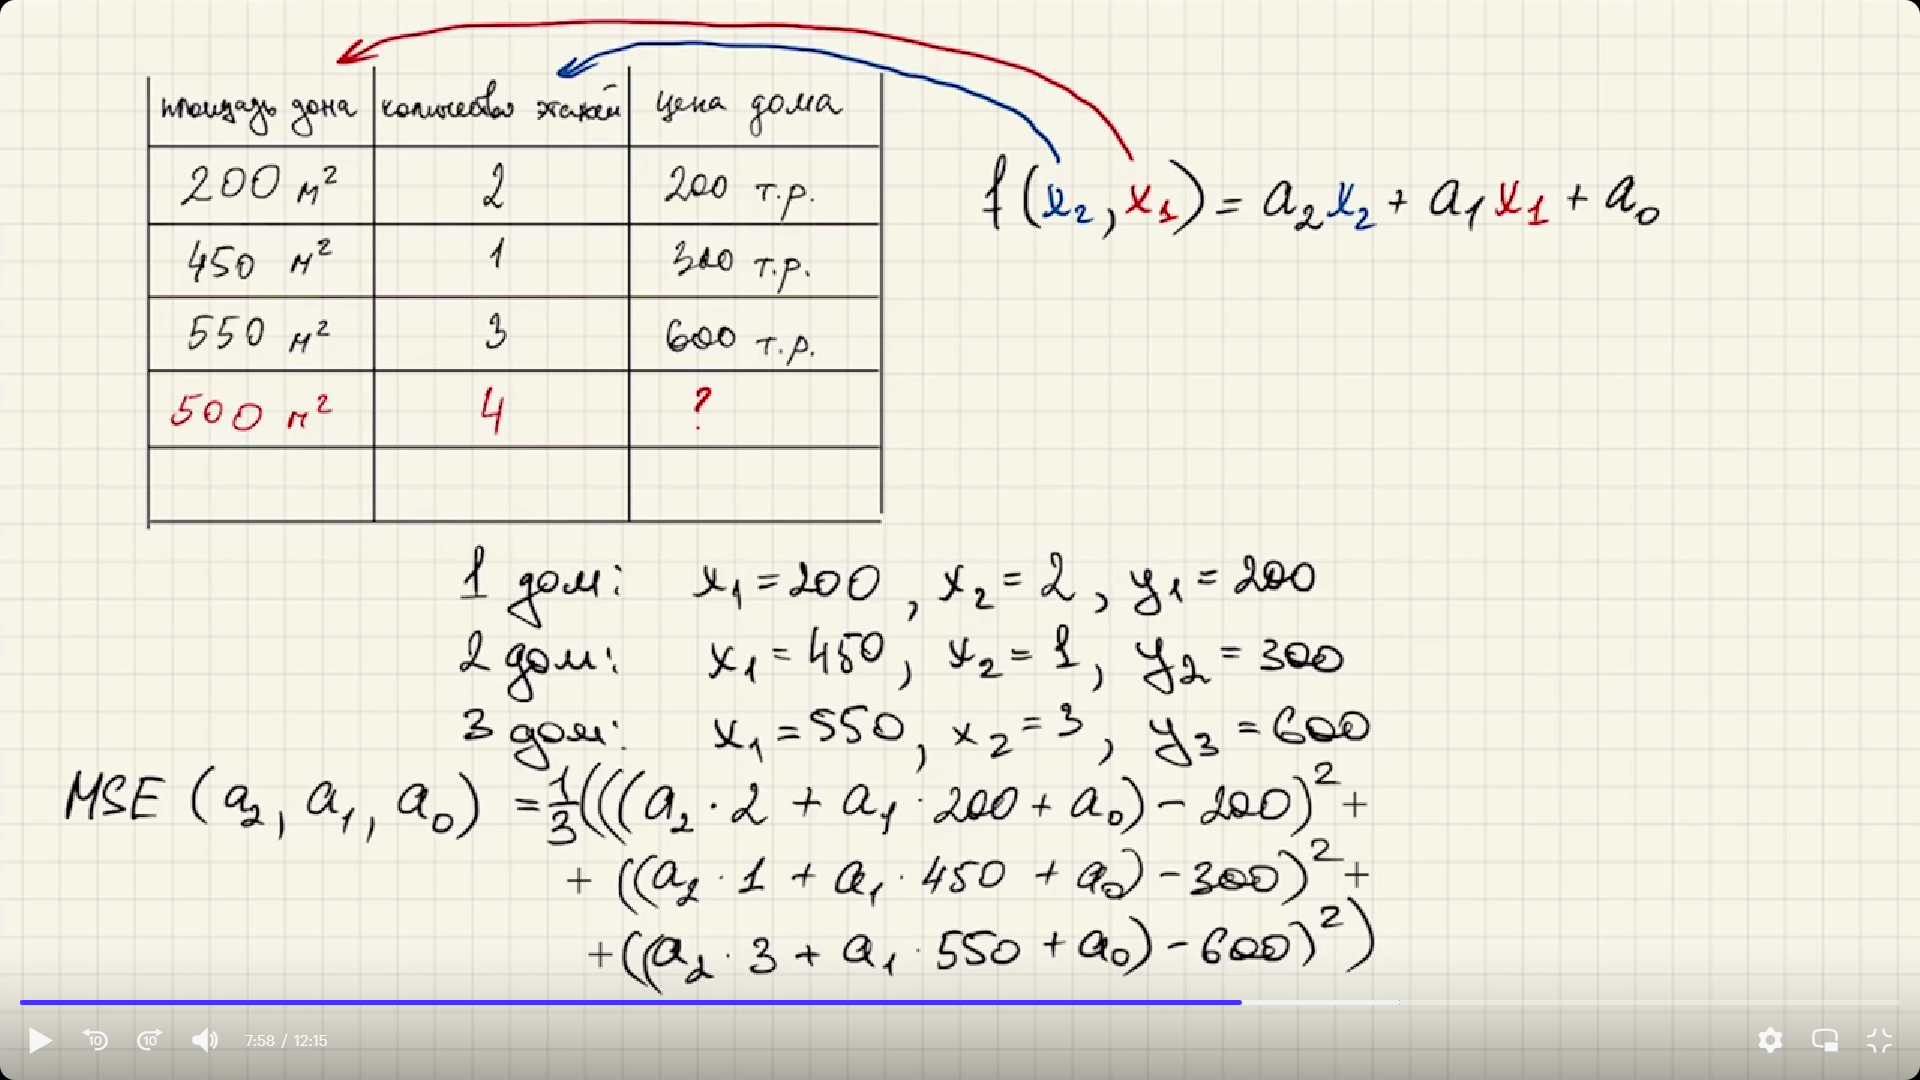 площадь дома количество этажей цена дома
200 м² 2 200 т.р.
450 м² 1 300 т.р.
550 м² 3 600 т.р.
500 м² 4 ?
f(x₂, x₁) = a₂x₂ + a₁x₁ + a₀
1 дом: x₁ = 200, x₂ = 2, y₁ = 200
2 дом: x₁ = 450, x₂ = 1, y₂ = 300
3 дом: x₁ = 550, x₂ = 3, y₃ = 600
MSE (a₂, a₁, a₀) = 1/3(((a₂ · 2 + a₁ · 200 + a₀) - 200)² +
+ ((a₂ · 1 + a₁ · 450 + a₀) - 300)² +
+ ((a₂ · 3 + a₁ · 550 + a₀) - 600)²)
10 10 7:58 / 12:15